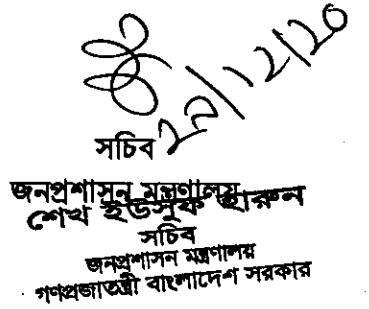 সচিব
জনপ্রশাসন মন্ত্রণালয়
শেখ ইউসুফ হারুন
সচিব
জনপ্রশাসন মন্ত্রণালয়
গণপ্রজাতন্ত্রী বাংলাদেশ সরকার